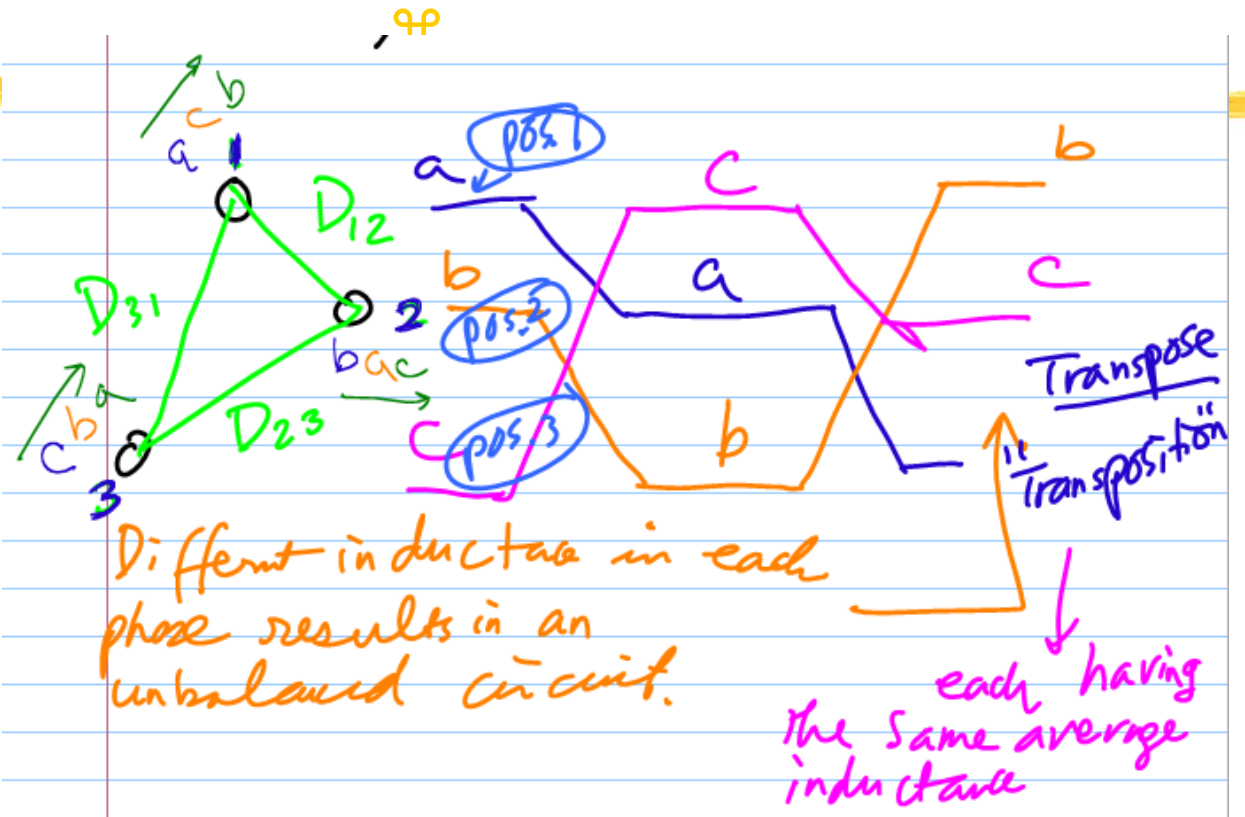 b
c
a
1
D12
D31
2
b a c
D23
a
b
c
3
a
pos.1
C
b
b
pos.2
a
C
C
pos.3
b
Transpose
"Transposition"
Differnt inductace in each
phase results in an
unbalaced circuit.
each having
the same average
inductance